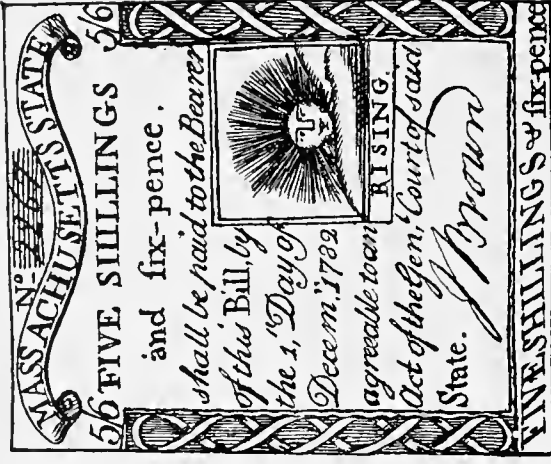 Nº 
MASSACHUSETTS STATE
5/6 FIVE SHILLINGS 5/6
and ſix-pence.
shall be paid to the Bearer
of this Bill, by
the 1,st Day of
Decem.r 1782
agreeable to an
Act of the Gen.l Court of said
State.
RISING.
J Brown
FIVE SHILLINGS & ſix-pence